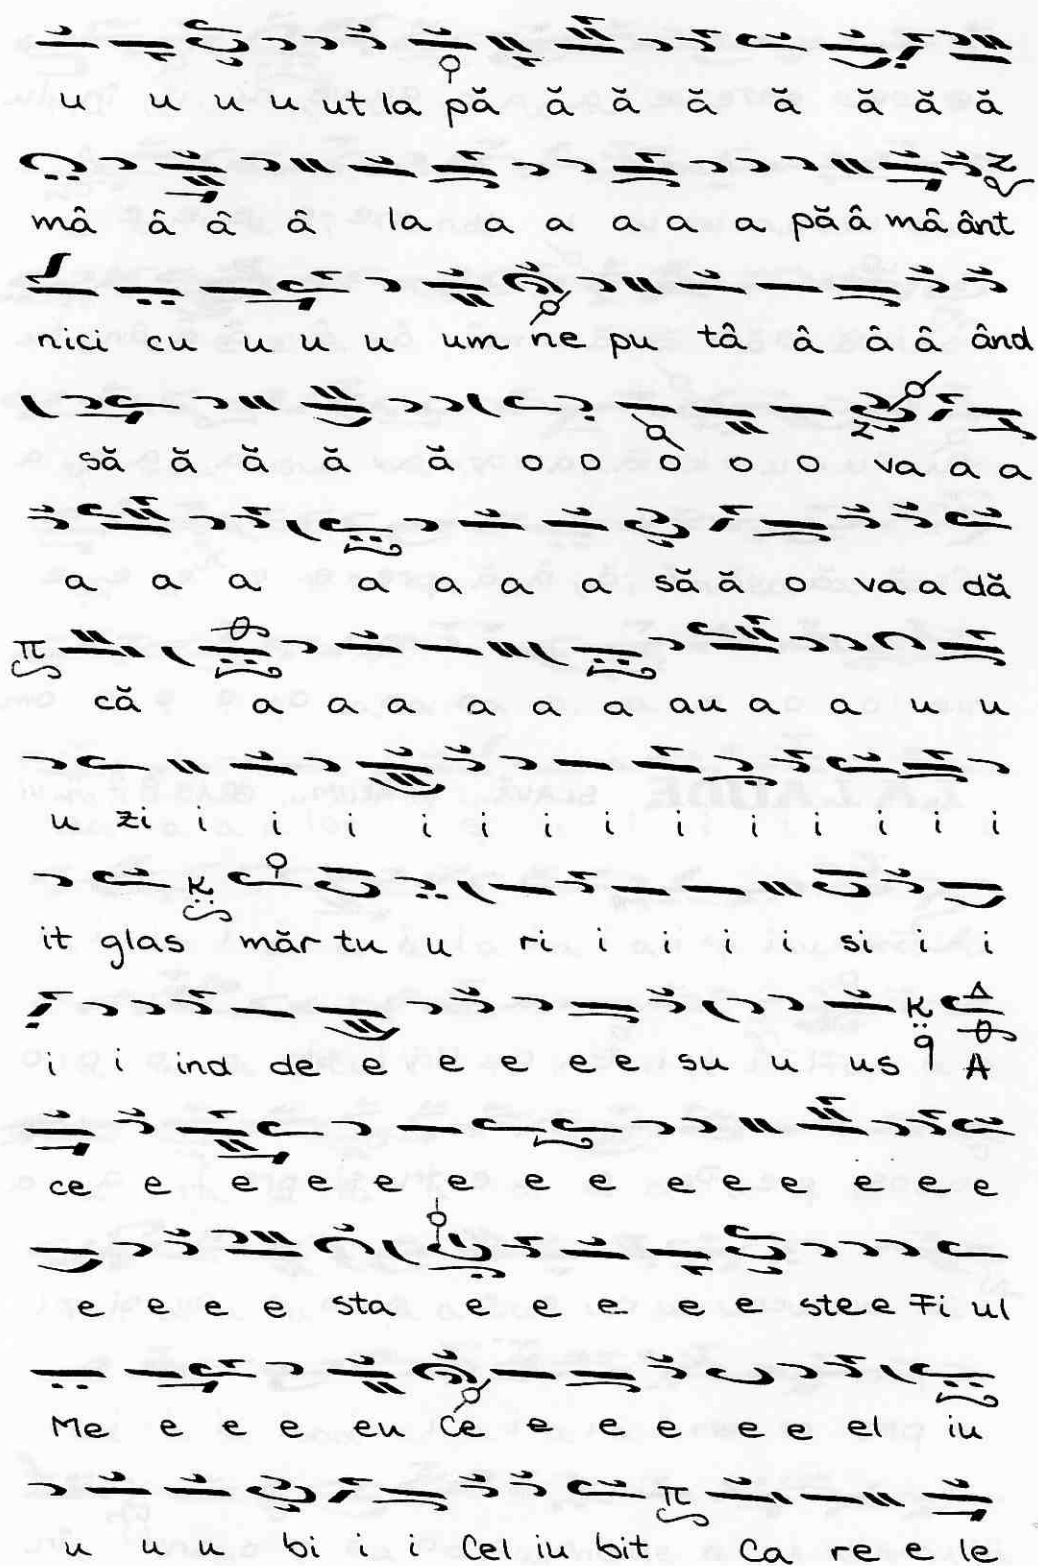 u u u u ut la pă ă ă ă ă ă ă ă
mâ â â â la a a a a a pă â mâ ânt
nici cu u u u um ne pu tâ â â â ând
să ă ă ă ă o o o o o va a a
a a a a a a a să ă o va a dă
că a a a a a a au a a u u
u zi i i i i i i i i i i i i
it glas măr tu u ri i i i i si i i
i i ind de e e e e e su u us A
ce e e e e e e e e e e e e e
e e e e sta e e e e e ste e Fi ul
Me e e e eu Ce e e e e e el iu
u u u bi i i Cel iu bit Ca re e le